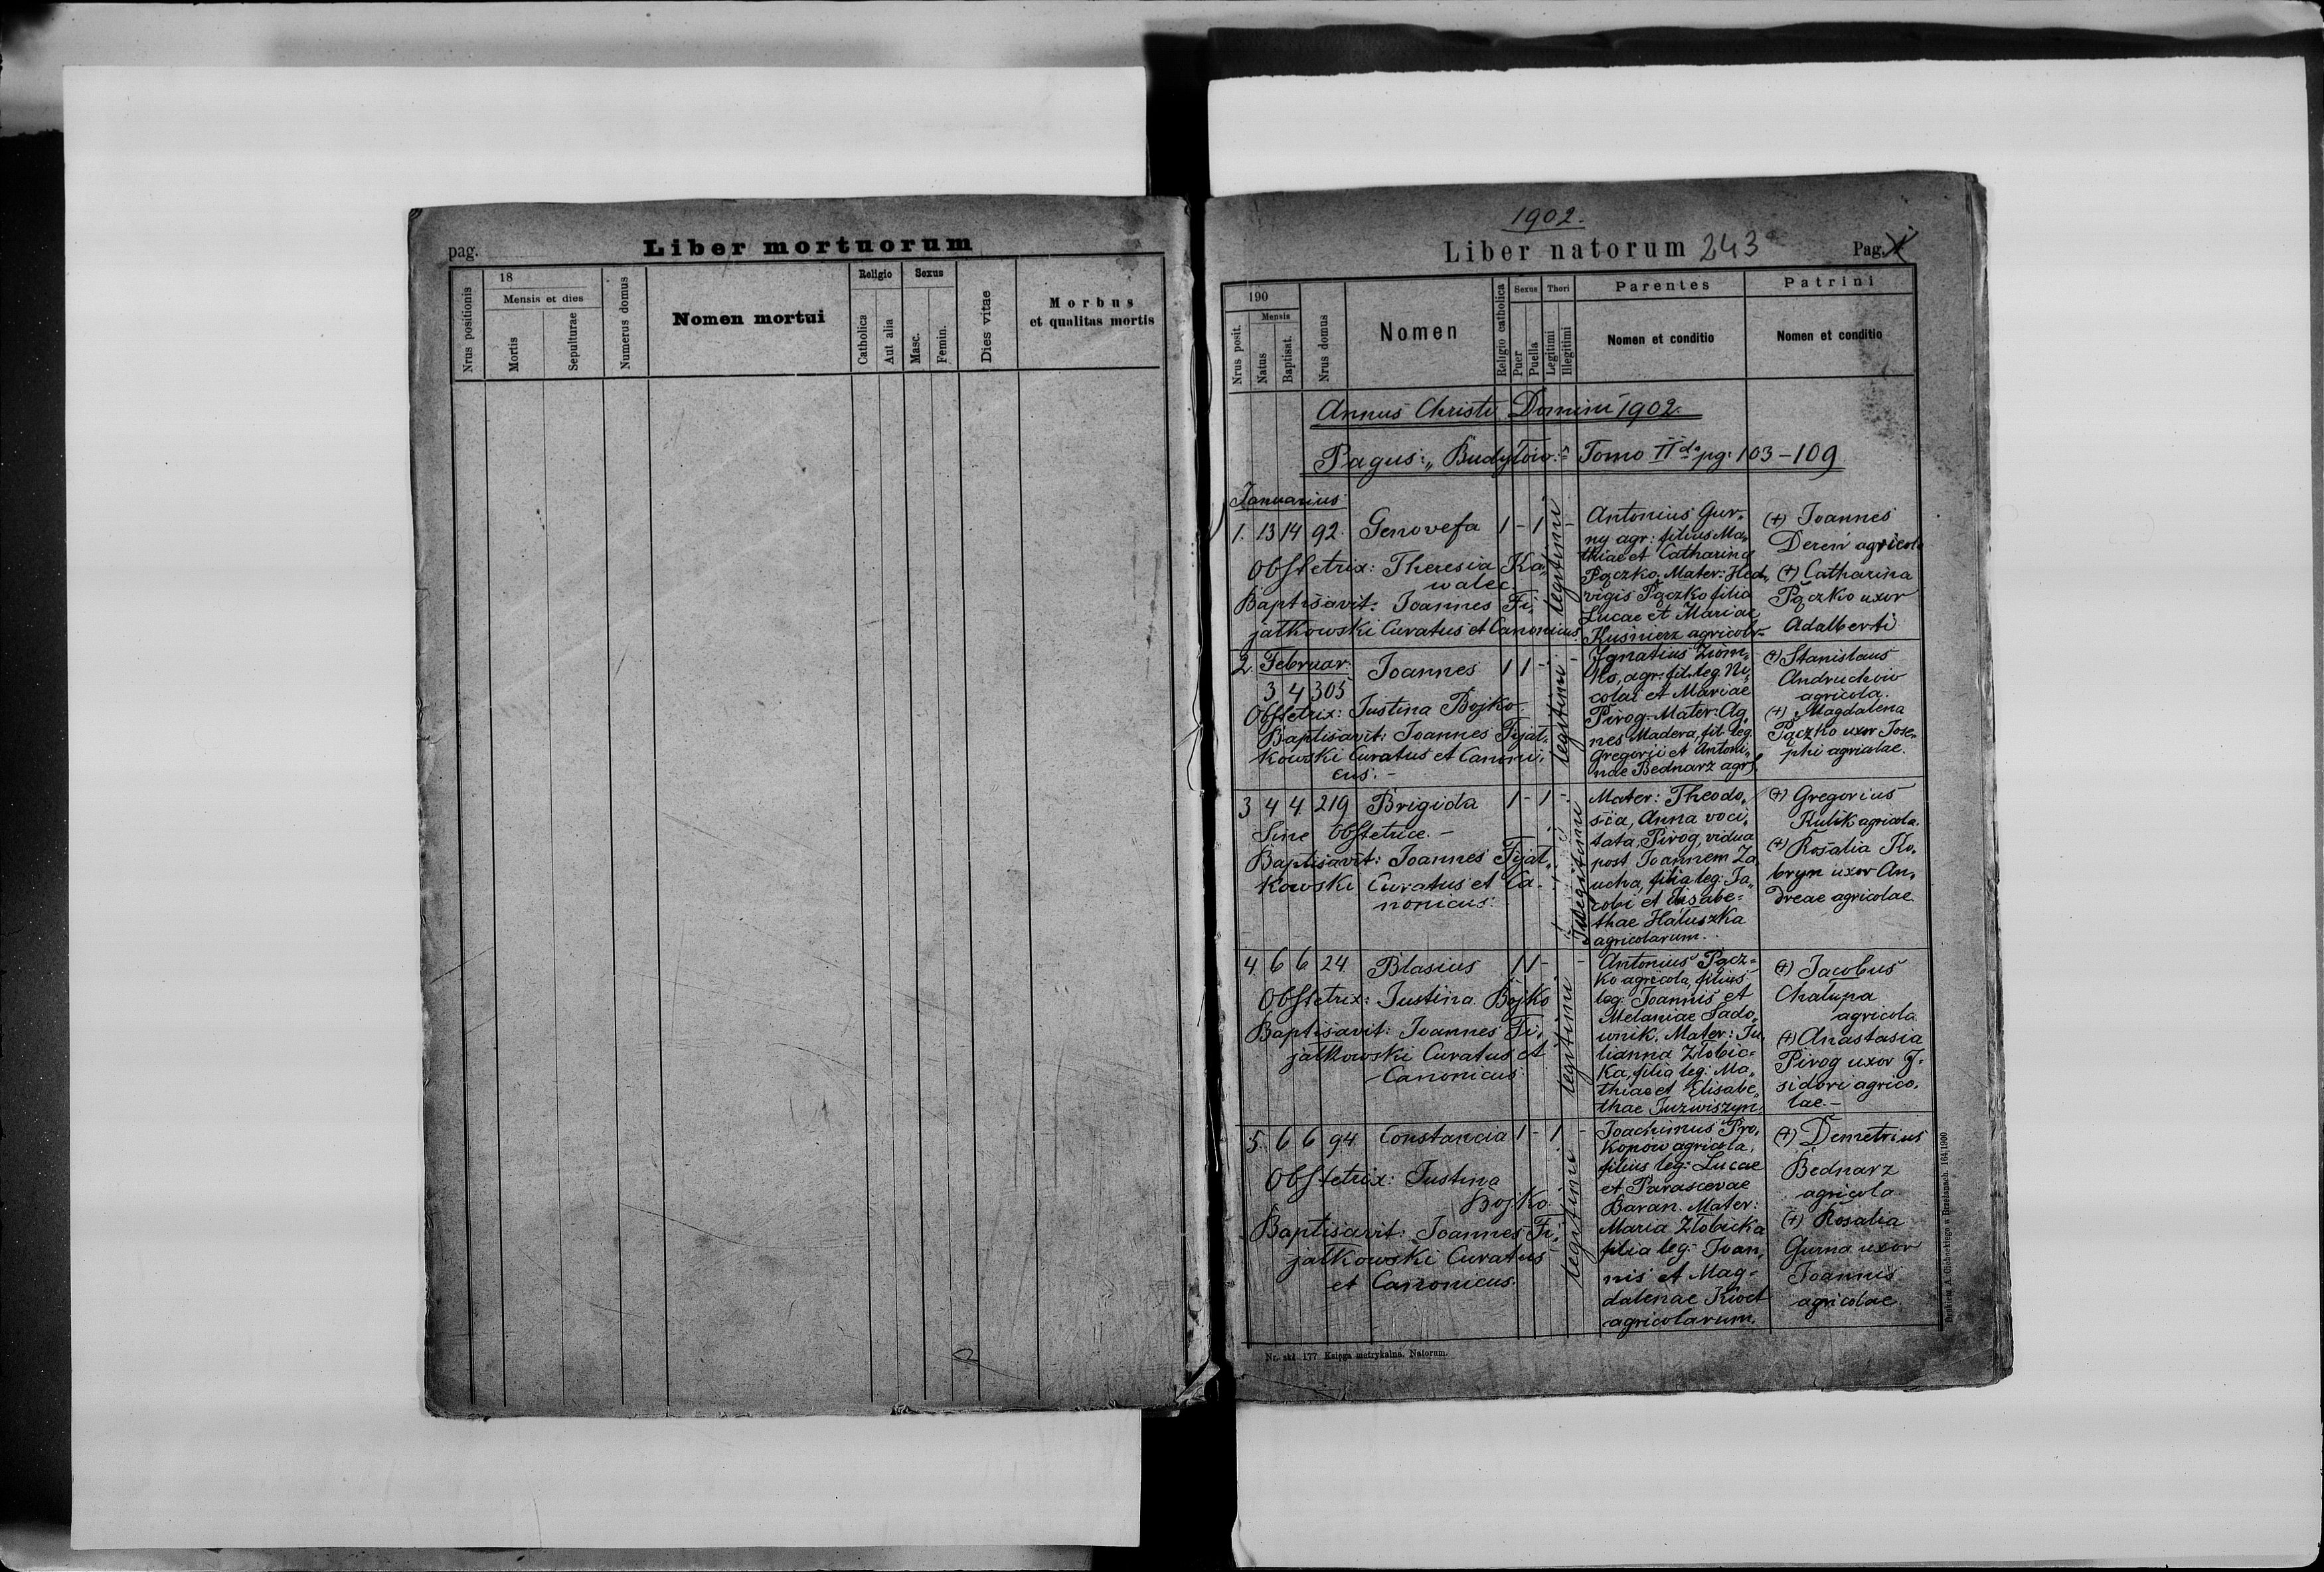 pag.
Liber mortuorum
Nrus positionis
18
Mensis et dies
Mortis
Sepulturae
Numerus domus
Nomen mortui
Religio
Catholica
Aut alia
Sexus
Masc.
Femin.
Dies vitae
Morbus
et qualitas mortis
1902.
Liber natorum 243
Pag.
Nrus posit.
190
Mensis
Natus
Baptisat.
Nrus domus
Nomen
Religio catholica
Sexus
Puer
Puella
Thori
Legitimi
Illegitimi
Parentes
Nomen et conditio
Patrini
Nomen et conditio
Annus Christi Domini 1902.
Pagus: „Budyłów:" Tomo II do pg: 103-109
Januarius
1. 13 14 92. Genovefa 1 - 1 -
Obstetrix: Theresia Ka„
walec
Baptisavit: Joannes Fi„
jałkowski Curatus et Canonicus.
legitimi
Antonius Gur„
ny agr: filius Ma„
thiae et Catharina
Pączko. Mater: Hed„
vigis Pączko filia
Lucae et Mariae
Kuśnierz agricolr.
(+) Joannes
Dereń agricola
(+) Catharina
Pączko uxor
Adalberti
2. Februar. Joannes 1 1 -
3 4 305
Obstetrix: Justina Bojko.
Baptisavit: Joannes Fijał„
kowski Curatus et Canoni„
cus. -
legitimi
Ignatius Ziom„
ko, agr: fil. leg. Ni„
colai et Mariae
Pirog. Mater: Ag„
nes Madera, fil. leg.
Gregorii et Antoni„
nae Bednarz agr.
(+) Stanislaus
Andruchów
agricola.
(+) Magdalena
Pączko uxor Jose„
phi agricolae.
3 4 4 219 Brigida 1 - 1 -
Sine obstetrice. -
Baptisavit: Joannes Fijał„
kowski Curatus et Ca„
nonicus.
Illegitimi
Mater: Theodo„
sia, Anna voci„
tata, Pirog, vidua
post Joannem Za„
ucha, filia leg: Ja„
cobi et Elisabe=
thae Hałuszka
agricolarum.
(+) Gregorius
Kulik agricola.
(+) Rosalia Ko„
bryn uxor An„
dreae agricolae.
4 6 6 24 Blasius 1 1 - -
Obstetrix: Justina Bojko
Baptisavit: Joannes Fi„
jałkowski Curatus et
Canonicus.
legitimi
Antonius Pącz=
ko agricola, filius
leg: Joannis et
Melaniae Sado„
wnik. Mater: Ju„
lianna Złobic=
ka, filia leg: Ma„
thiae et Elisabe„
thae Juzwiszyn.
(+) Jacobus
Chalupa
agricola.
(+) Anastasia
Pirog uxor J=
sidori agrico„
lae. -
5. 6 6 94. Constancia 1 - 1 -
Obstetrix: Justina
Bojko
Baptisavit: Joannes Fi„
jałkowski Curatus
et Canonicus.
legitimi
Joachimus Pro„
kopów agricola,
filius leg: Lucae
et Parascevae
Baran. Mater:
Maria Złobicka
filia leg: Joan„
nis et Mag=
dalenae
agricolarum.
(+) Demetrius
Bednarz
agricola
(+) Rosalia
Gurna uxor
Joannis
agricolae.
Nr. skł. 177. Księga metrykalna. Natorum.